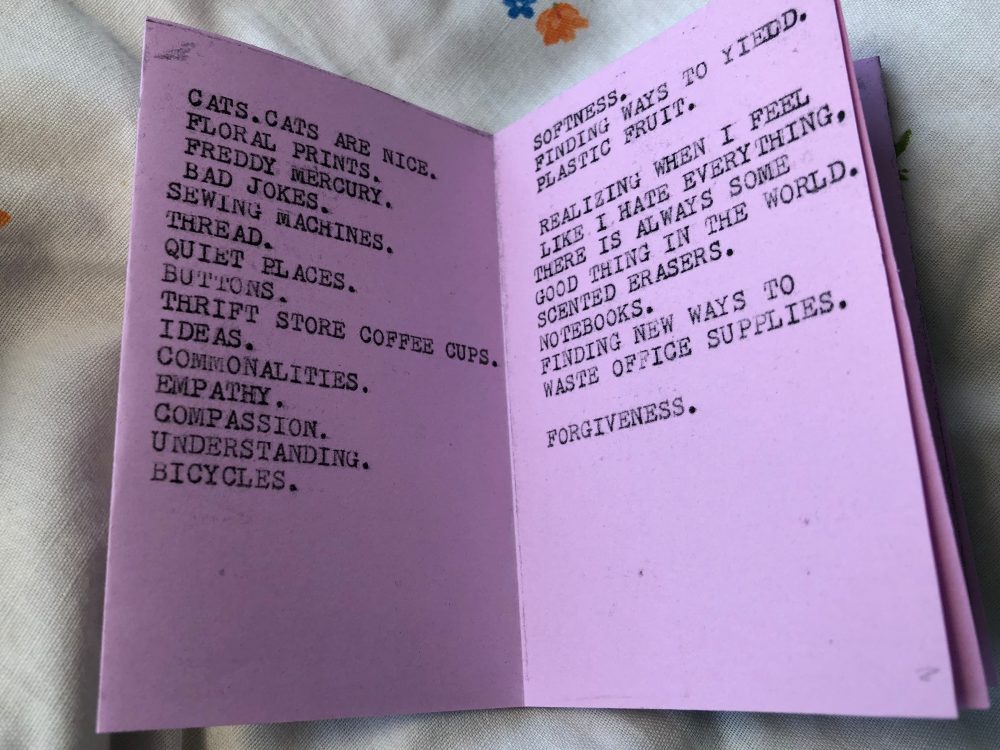 CATS.CATS ARE NICE.
FLORAL PRINTS.
FREDDY MERCURY.
BAD JOKES.
SEWING MACHINES.
THREAD.
QUIET PLACES.
BUTTONS.
THRIFT STORE COFFEE CUPS.
IDEAS.
COMMONALITIES.
EMPATHY.
COMPASSION.
UNDERSTANDING.
BICYCLES.
SOFTNESS.
FINDING WAYS TO YIELD.
PLASTIC FRUIT.
REALIZING WHEN I FEEL
LIKE I HATE EVERYTHING,
THERE IS ALWAYS SOME
GOOD THING IN THE WORLD.
SCENTED ERASERS.
NOTEBOOKS.
FINDING NEW WAYS TO
WASTE OFFICE SUPPLIES.
FORGIVENESS.